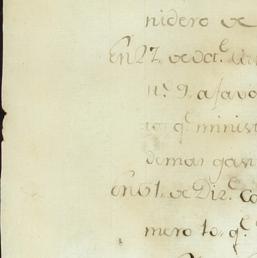 nidero de
En 27. de Oct.e
n.o 9. a favo
q.e minist
demas gas
En 31. de Dic.e Co
mero 10. q.e